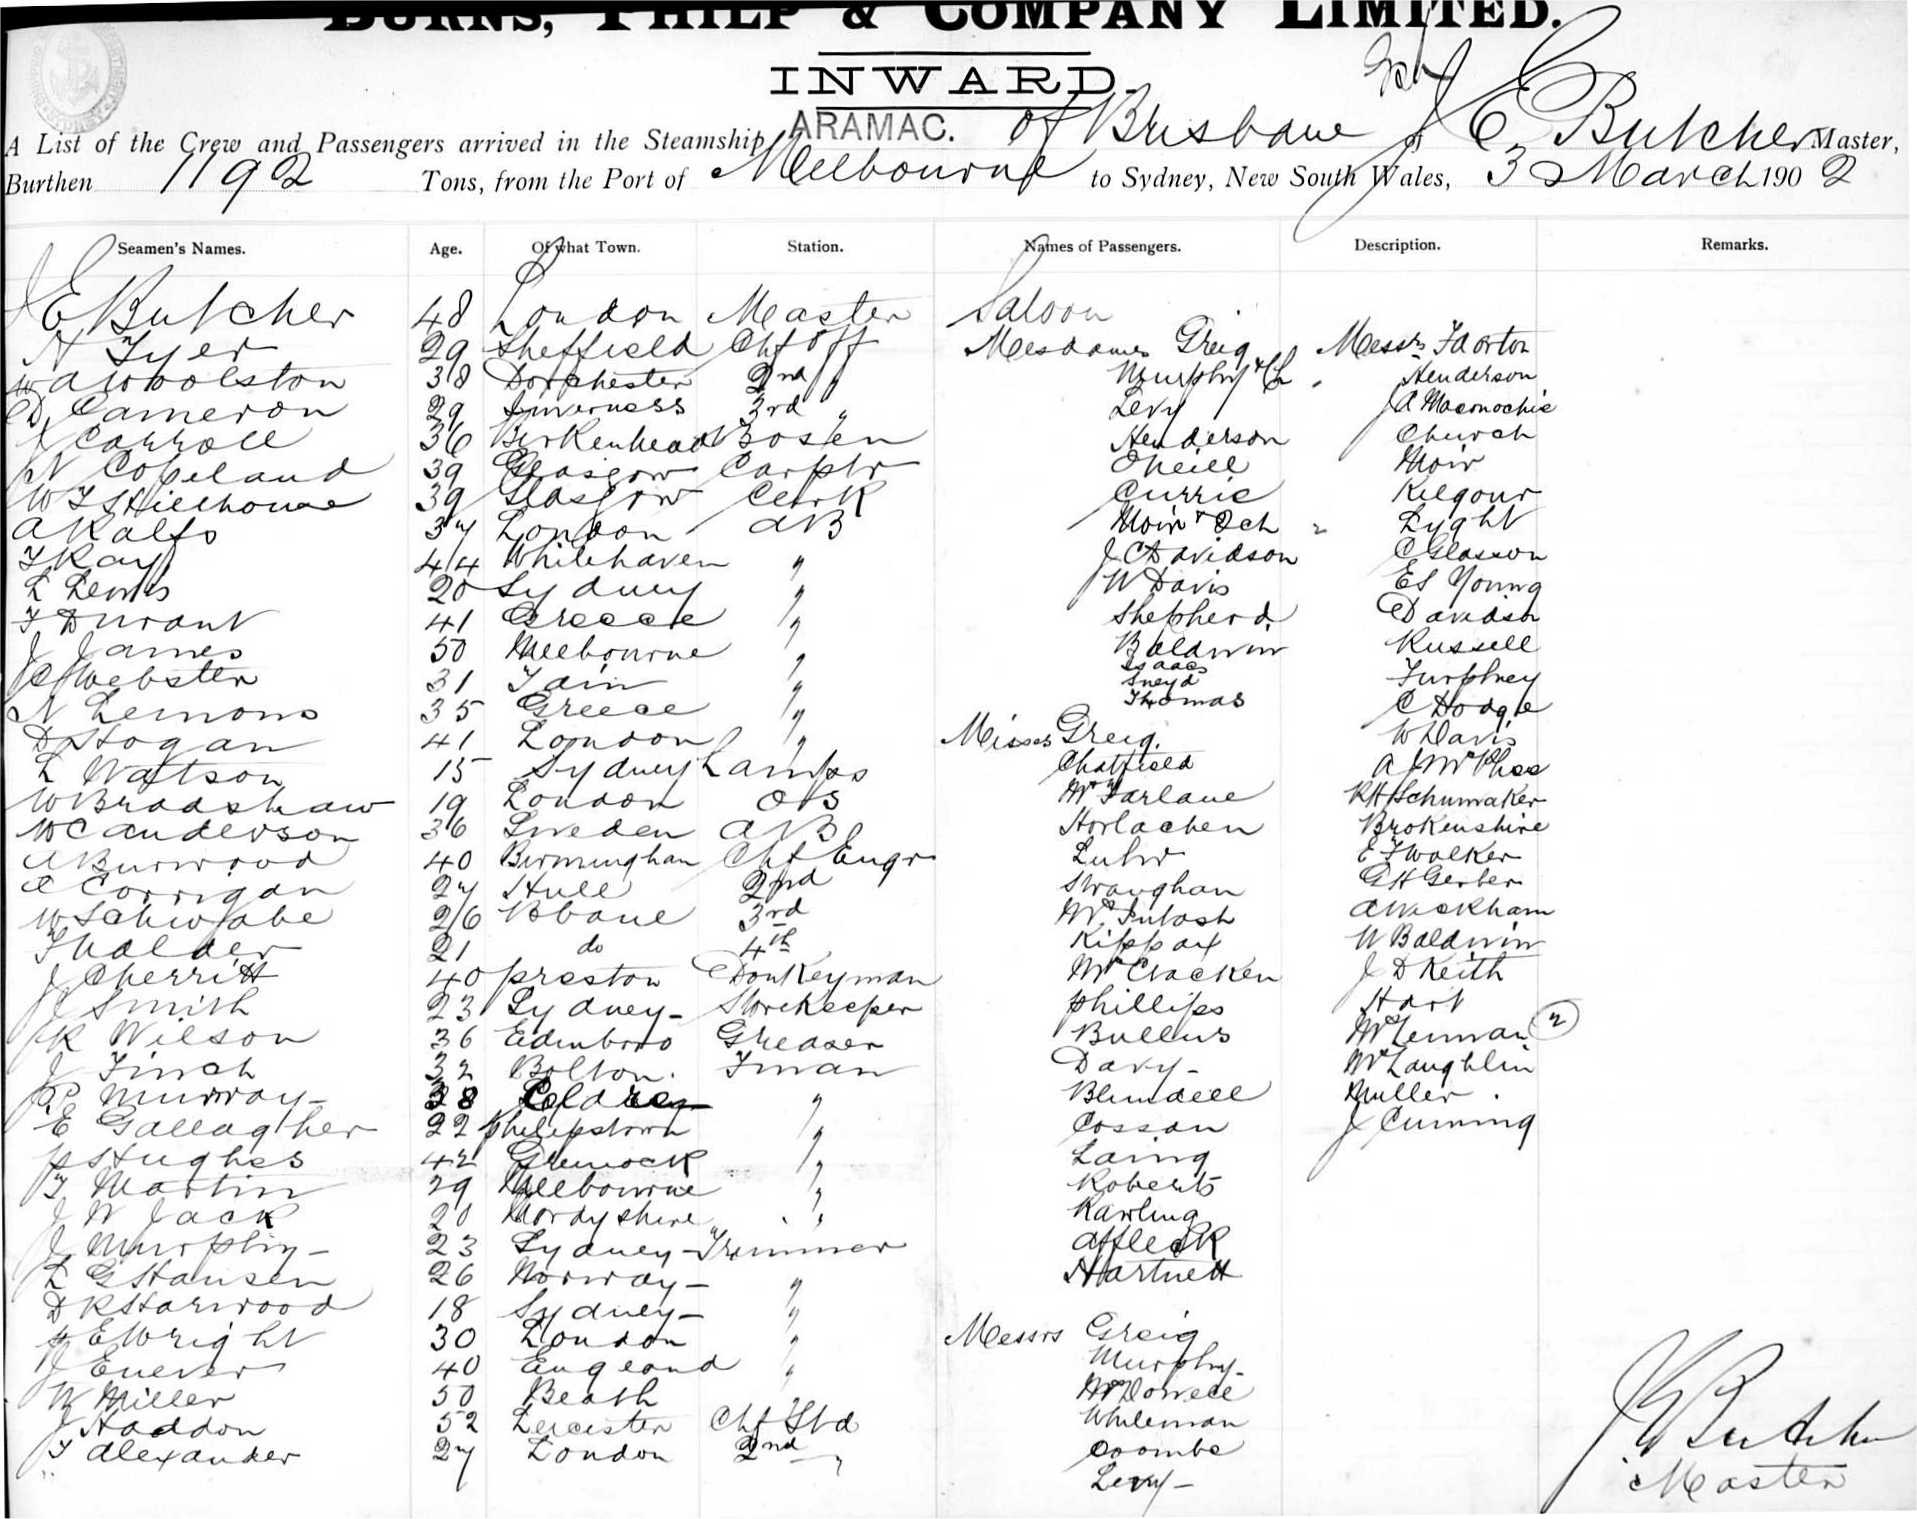 BURNS, PHILP & COMPANY LIMITED.
INWARD.
A List of the Crew and Passengers arrived in the Steamship ARAMAC. of Brisbane J E Butcher Master,
Burthen 1192 Tons, from the Port of Melbourne to Sydney, New South Wales, 3 March 1902
Seamen's Names. Age. Of what Town. Station. Names of Passengers. Description. Remarks.
J E Butcher 48 London Master Saloon
N Tyer 29 Sheffield Chf Off Mesdames Greig Messrs
W A Woolston 38 Dorchester 2nd " Murphy & Ch " Henderson
D Cameron 29 Inverness 3rd " Levy J A Maconochie
J Carroll 36 Birkenhead Bosen Henderson Church
N Copeland 39 Glasgow Carptr ONeill Moir
W T S Hillhouse 39 Glasgow Clerk Currie Kilgour
A Ralfs 37 London AB Moir & 2ch " Lyght
T Ray 44 Whitehaven " J C Davidson C Glasson
L Lewis 20 Sydney " W Davis E S Young
T Durant 41 Greece " Shepherd Davidson
J James 50 Melbourne " Baldwin Russell
J C Webster 31 Tain " Isaacs Furphrey
Sneyd
N Lemons 35 Greece " Thomas C Hodge
D Hogan 41 London " Misses Greig. W Davis
L Watson 15 Sydney Lamps Chatfield A J McPhee
W Bradshaw 19 London OS McFarlane R H Schumaker
W C Anderson 36 Sweden AB Horlachen Brokenshire
A Burwood 40 Birmingham Chf Engr Luhr E F Walker
C Corrigan 27 Hull 2nd Straughan G H Gerber
W Schwabe 26 Bbane 3rd McIntosh A Wickham
T Halder 21 do 4th Kippax W Baldwin
J Cherritt 40 Preston Donkeyman McCracken J D Keith
J Smith 23 Sydney - Storekeeper Phillips Hart
R Wilson 36 Edinbro Greaser Bullers McLennan (2)
J Finch 32 Bolton. Fman Davy - McLaughlin
P Murray - 38 " Blundell Muller .
E Gallagher 22 Philipstown " Cosson J Cuming
P Hughes 42 Greenock " Laing
T Martin 29 Melbourne " Roberts
J W Jack 20 " Rawling
J Murphy - 23 Sydney - Trimmer Affleck
L G Hansen 26 Norway - " Hartnett
D R Harwood 18 Sydney - "
H E Wright 30 London " Messrs Greig
J Enever 40 England " Murphy -
W Miller 50 Beath McDowell
J Haddon 52 Leicester Chf Std Whileman
T Alexander 27 London 2nd " Coombe
Levy -
J E Butcher
Master